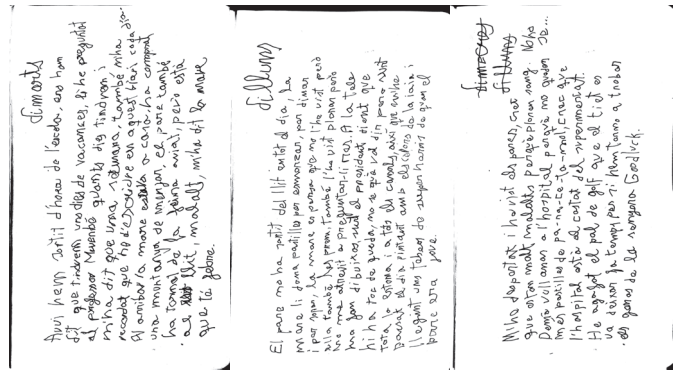 dimarts
Avui hem sortit d'hora de l'escola, ens han
dit que tindrem uns dies de vacances, li he preguntat
al professor quants dies tindrem i
m'ha dit que una setmana, també m'ha
recordat que he d'escriure en aquest diari cada dia.
Al arribar la mare estava a casa, ha comprat
una muntanya de menjar, el pare també
ha tornat de la feina aviat, però està
al llit, malalt, m'ha dit la mare
que té febre.
dilluns
El pare no ha sortit del llit en tot el dia, la
mare li dona pastilles per esmorzar, per dinar
i per sopar, la mare es pensa que no l'he vist però
ella també les pren, també l'he vist plorar però
no me atrevit a preguntar-li res. A la tele
no fan dibuixos, surt el president, dient que
hi ha toc de queda, no se què vol dir però surt
tota la estona i a tots els canals, així que m'he
passat el dia jugant amb els de la iaia i
llegint uns tebeos de superherois de quan el
pare era jove
dimecres
dilluns
M'he despertat i he vist els pares, crec
que estan molt malalts perquè ploren sang.
Demà vull anar a l'hospital perquè no queden
més pastilles de pa-ra-ce-ta-mol, crec que
l'hospital està al costat del supermercat.
He agafat el pal de golf que el tiet es
va deixar fa temps per si hem torno a trobar
els gossos de la senyora Goodluck.